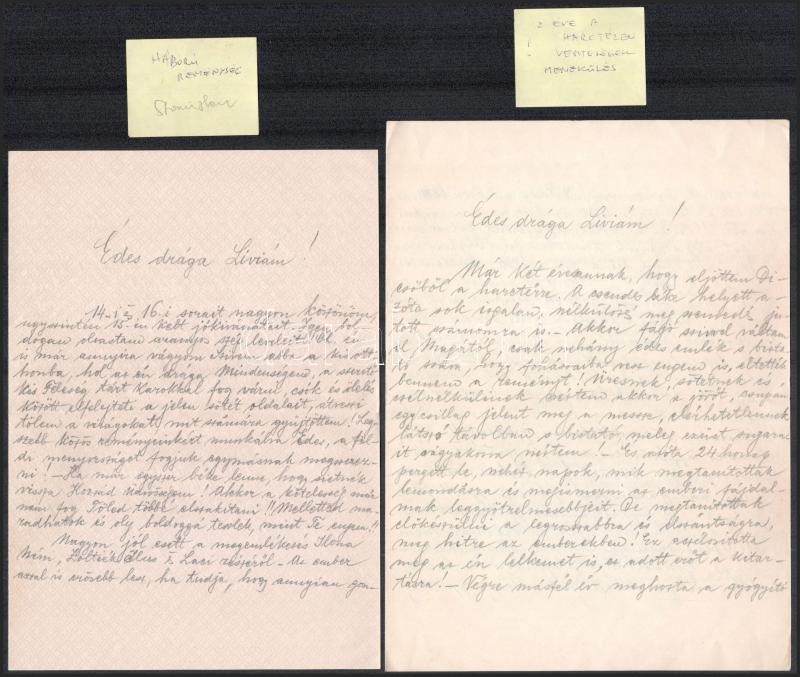 HÁBORÚ
REMÉNYSÉG
2 ÉVE A
HARCTÉREN
MENEKÜLÉS
Édes drága Líviám!
14-i és 16.i sorait nagyon köszönöm,
úgyszintén 15-én kelt jókívánatait. Igen bol-
dogan olvastam aranyos szép leveleit! Oh én
is már annyira vágyom Szívem abba a kis ott-
honba, hol az én drága Mindenségem, a szerető
kis Feleség tárt karokkal fog várni, csók és ölelés
között elfelejteti a jelen sötét oldalait, átveszi
tőlem a virágokat, mit számára gyűjtöttem! Leg-
szebb közös reményeinkért munkálva Édes, a föl-
di mennyországot fogjuk egymásnak megszerez-
ni! - Ha már egyszer béke lenne, hogy sietnék
vissza Hozzád! Akkor a kötelesség már
nem fog Tőled többé elszakítani!! Melletted ma-
radhatok és oly boldoggá teszlek, mint Te engem!!
Nagyon jól esett a megemlékezés Ilona
Néni, és Laci részéről. - Az ember
azzal is erősebb lesz, ha tudja, hogy annyian gon-
Édes drága Líviám!
Már két éve annak, hogy eljöttem Di-
csőből a harctérre. A csendes béke helyett a-
zóta sok izgalom, nélkülözés meg szenvedés ju-
tott számomra is. - Akkor fájó szívvel váltam
el Magától, csak néhány édes emlék s bizta-
tó szava, hogy imáiba vesz engem is, éltették
bennem a reményt! Üresnek, sötétnek és
színtelennek véltem akkor a jövőt, csupán
egy csillag jelent meg a messze, elérhetetlennek
látszó távolban s biztató, meleg ezüst sugara-
it vágyakozva néztem! - És azóta 24 hónap
pergett le, nehéz napok, mik megtanítottak
lemondásra és megismerni az emberi fájdal-
mak leggyötrelmesebbjeit. De megtanítottak
előkészülni a legrosszabbra és elszántságra,
meg hitre az emberekben! Ez acélosította
meg az én lelkemet is, ez adott erőt a kitar-
tásra! - Végre másfél év meghozta a gyógyító